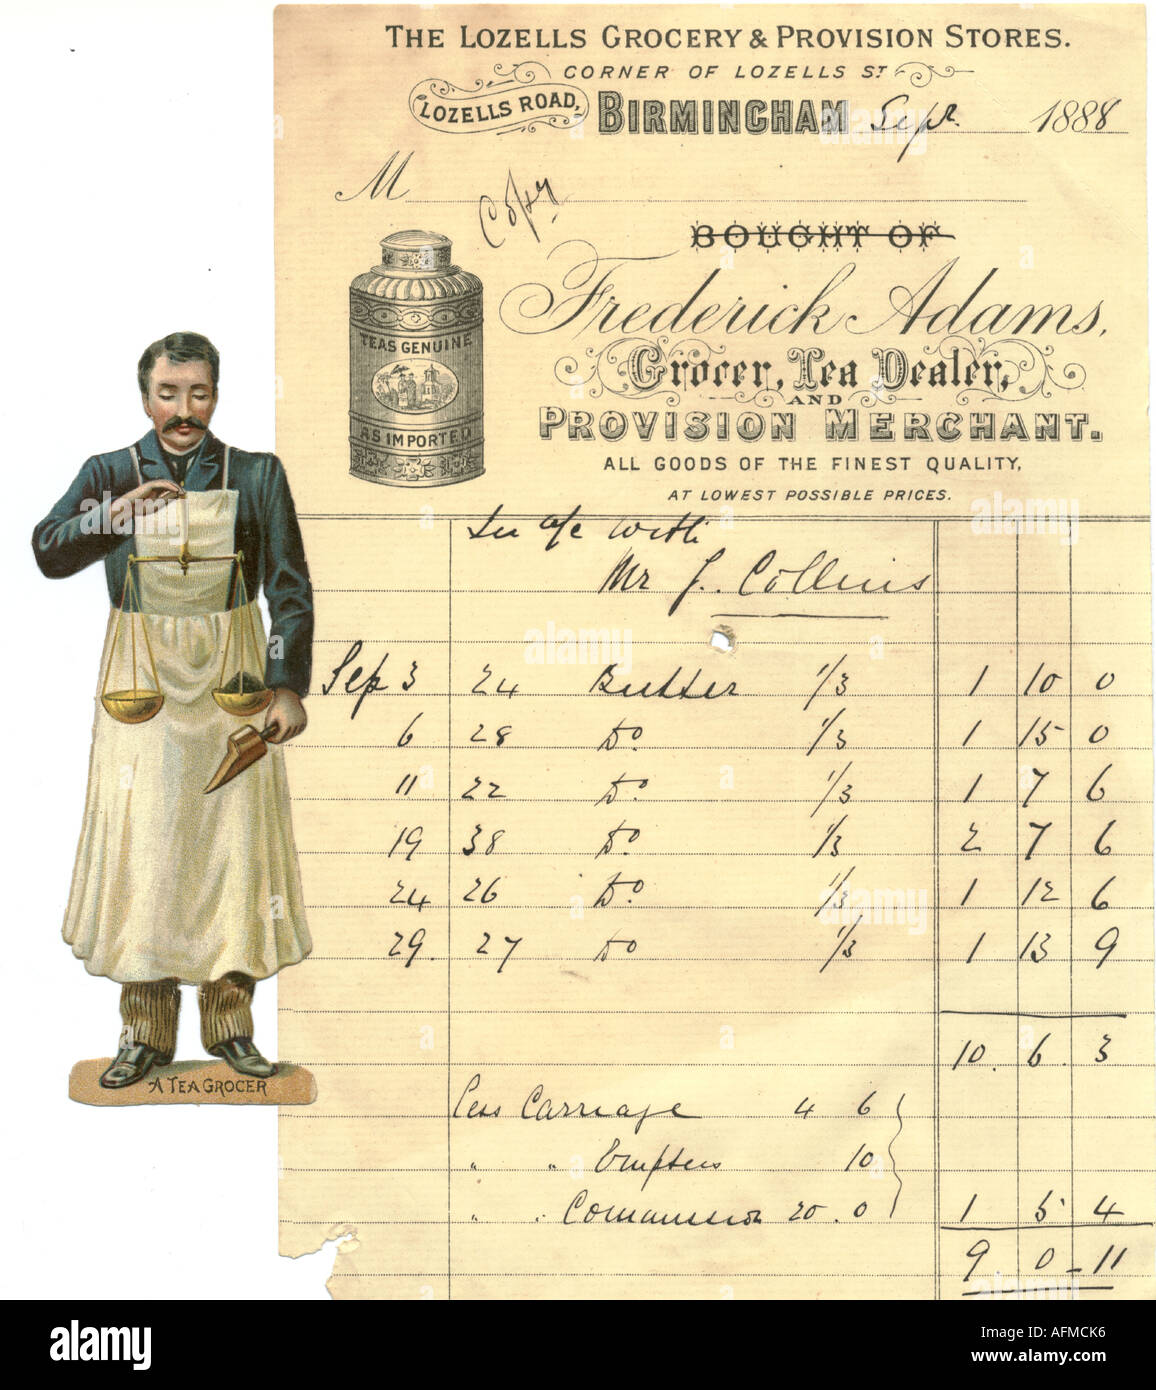 THE LOZELLS GROCERY & PROVISION STORES.
CORNER OF LOZELLS ST
LOZELLS ROAD, BIRMINGHAM Sepr. 1888
M
Copy
BOUGHT OF
Frederick Adams,
Grocer, Tea Dealer,
AND
PROVISION MERCHANT.
ALL GOODS OF THE FINEST QUALITY,
AT LOWEST POSSIBLE PRICES.
TEAS GENUINE
AS IMPORTED
In a/c with
Mr J. Collins
Sep 3 24 Butter 1/3 1 10 0
6 28 Do. 1/3 1 15 0
11 22 Do. 1/3 1 7 6
19 38 Do 1/3 2 7 6
24 26 Do 1/3 1 12 6
29. 27 Do 1/3 1 13 9
10. 6. 3
Less Carriage 4 6
" " Empties 10
" " Commission 20. 0 1 5 4
9 0-11
A TEA GROCER
alamy
Image ID: AFMCK6
www.alamy.com